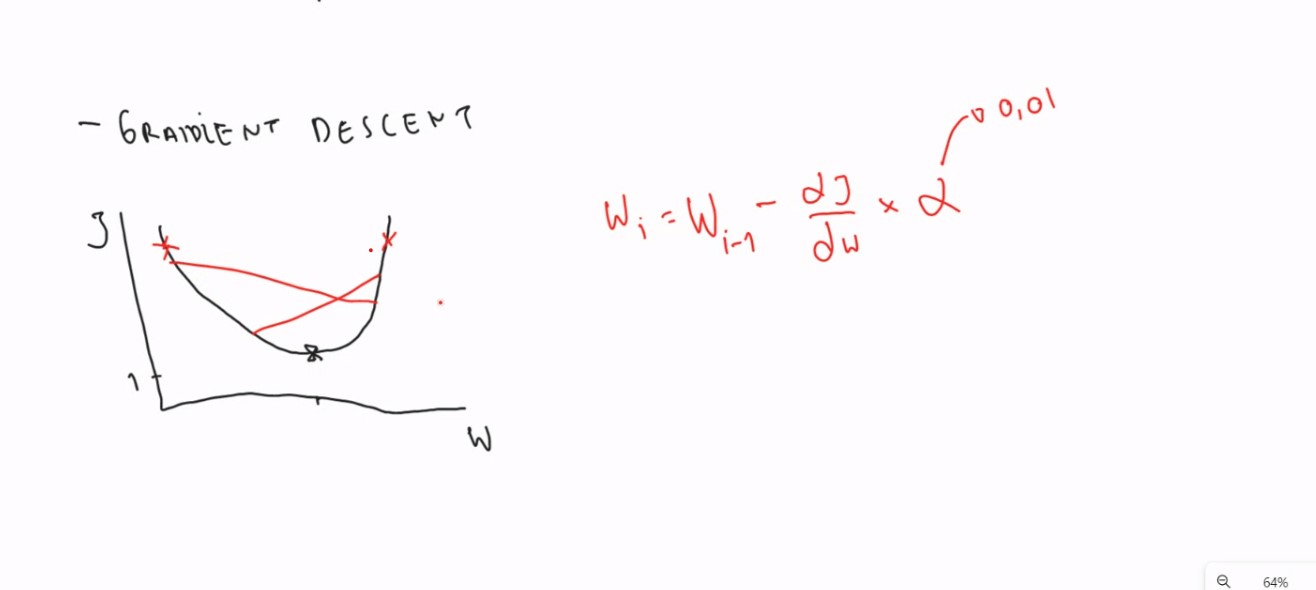 - GRADIENT DESCENT
0,01
Wi = Wi-1 - dJ/dw × α
J
1
W
64%